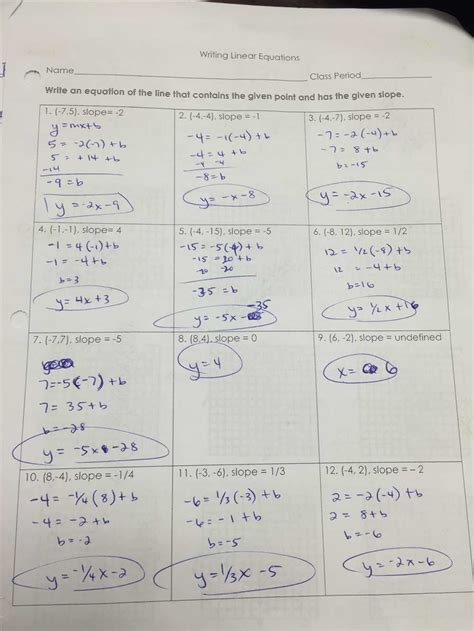 Writing Linear Equations
Name
Class Period
Write an equation of the line that contains the given point and has the given slope.
1. (-7,5), slope= -2
y = mx+b
5 = -2(-7)+b
5 = +14 +b
-14
-9 = b
y = -2x-9
2. (-4,-4), slope = -1
-4 = -1(-4)+b
-4 = 4 +b
-4 -4
-8 = b
y = -x-8
3. (-4,-7), slope = -2
-7 = -2(-4)+b
-7 = 8+b
b=-15
y = -2x-15
4. (-1,-1), slope= 4
-1 = 4(-1)+b
-1 = -4+b
b=3
y = 4x+3
5. (-4, -15), slope = -5
-15 = -5(4)+b
-15 = 20+b
-20 -20
-35 = b
-35
y = -5x-
6. (-8, 12), slope = 1/2
12 = 1/2(-8)+b
12 = -4+b
b=16
y = 1/2x+16
7. (-7,7), slope = -5
7=-5(-7)+b
7= 35+b
b=-28
y = -5x-28
8. (8,4), slope = 0
y=4
9. (6, -2), slope = undefined
x= 6
10. (8,-4), slope = -1/4
-4 = -1/4(8)+b
-4 = -2+b
b=-2
y=-1/4x-2
11. (-3, -6), slope = 1/3
-6 = 1/3(-3)+b
-6 = -1+b
b=-5
y=1/3x-5
12. (-4, 2), slope = – 2
2 = -2(-4)+b
2 = 8+b
b=-6
y = -2x-6